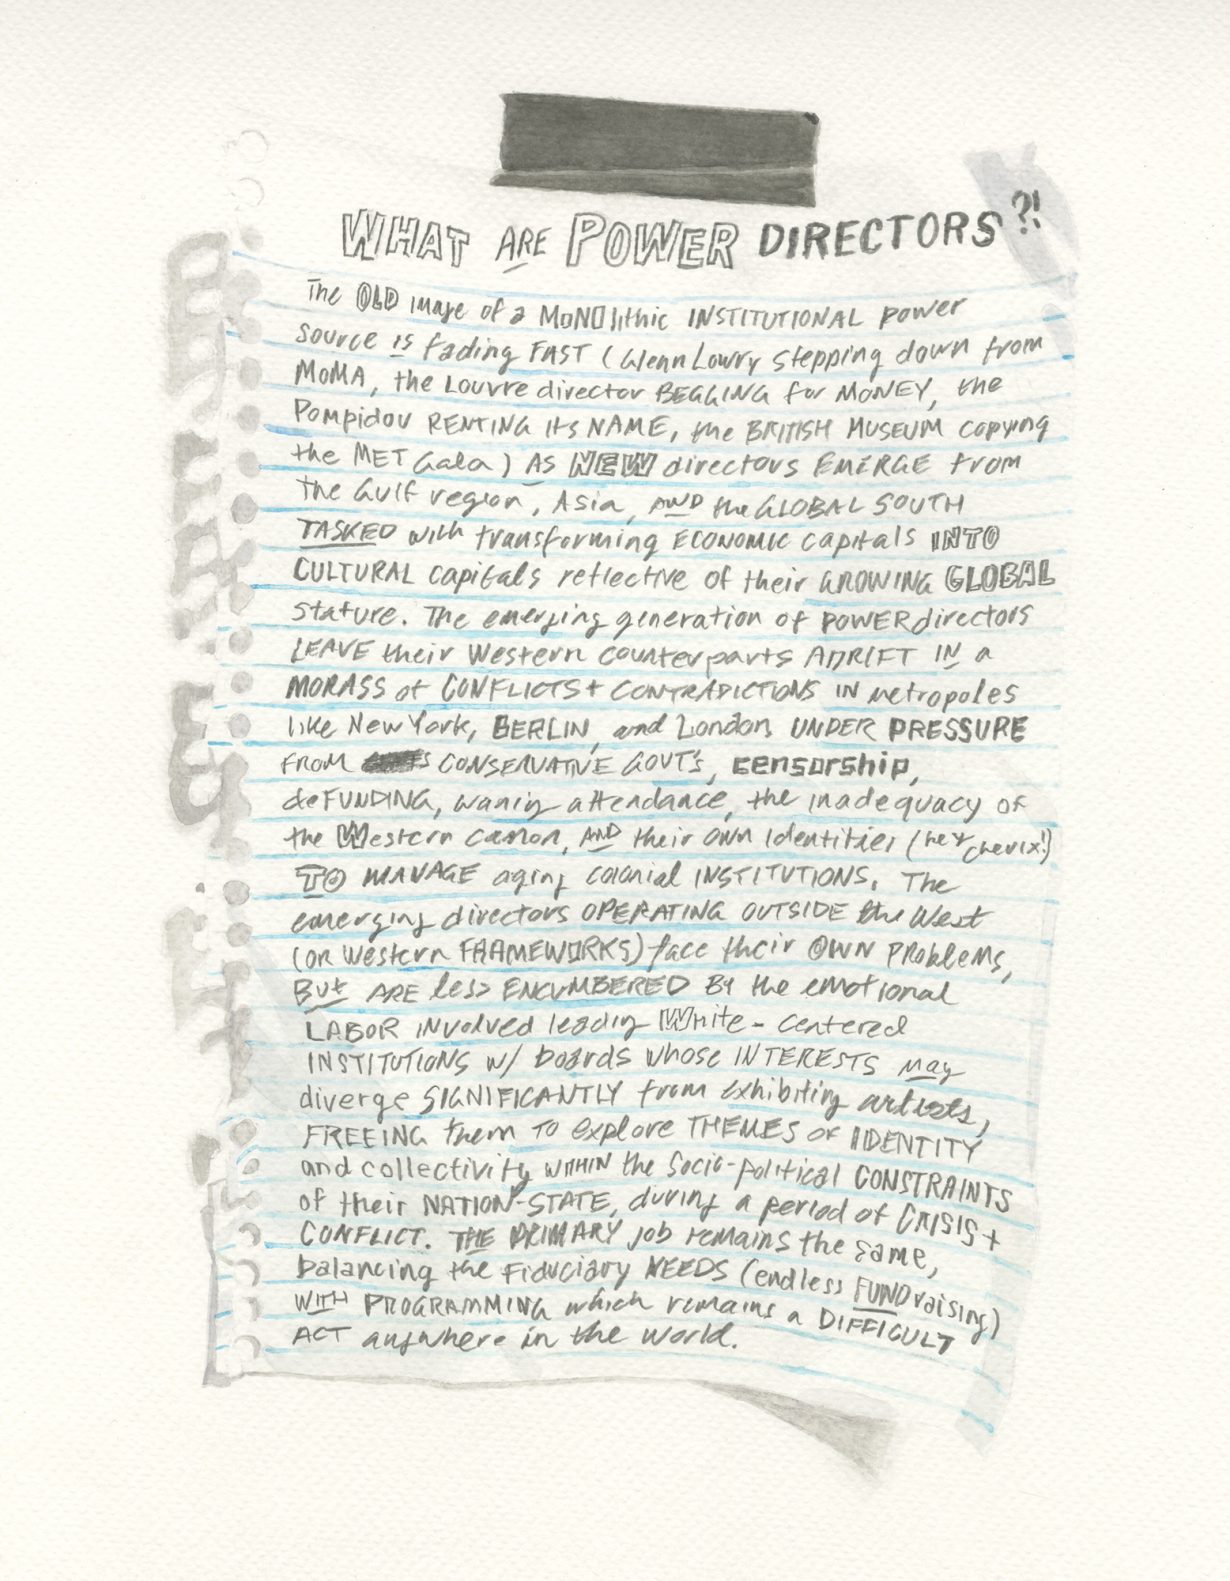 WHAT ARE POWER DIRECTORS?!
The OLD image of a MONOlithic INSTITUTIONAL power
source is fading FAST (Glenn Lowry stepping down from
MoMA, the Louvre director BEGGING for MONEY, the
Pompidou RENTING its NAME, the BRITISH MUSEUM copying
the MET Gala) AS NEW directors EMERGE from
the Gulf region, Asia, AND the GLOBAL SOUTH
TASKED with transforming ECONOMIC capitals INTO
CULTURAL capitals reflective of their GROWING GLOBAL
stature. The emerging generation of POWER directors
LEAVE their Western counterparts ADRIFT IN a
MORASS of CONFLICTS + CONTRADICTIONS IN metropoles
like New York, BERLIN, and London UNDER PRESSURE
FROM CONSERVATIVE GOVT'S, censorship,
deFUNDING, waning attendance, the inadequacy of
the Western canon, AND their OWN Identities (hey Cherix!)
TO MANAGE aging colonial INSTITUTIONS. The
emerging directors OPERATING OUTSIDE the West
(OR Western FRAMEWORKS) face their OWN Problems,
BUt ARE less ENCUMBERED BY the emotional
LABOR involved leading White-centered
INSTITUTIONS w/ boards whose INTERESTS may
diverge SIGNIFICANTLY from exhibiting artists,
FREEING them TO explore THEMES of IDENTITY
and collectivity WITHIN the Socio-political CONSTRAINTS
of their NATION-STATE, during a period of CRISIS +
CONFLICT. THE PRIMARY job remains the same,
balancing the Fiduciary NEEDS (endless FUNDraising)
WITH PROGRAMMING which remains a DIFFICULT
ACT anywhere in the world.